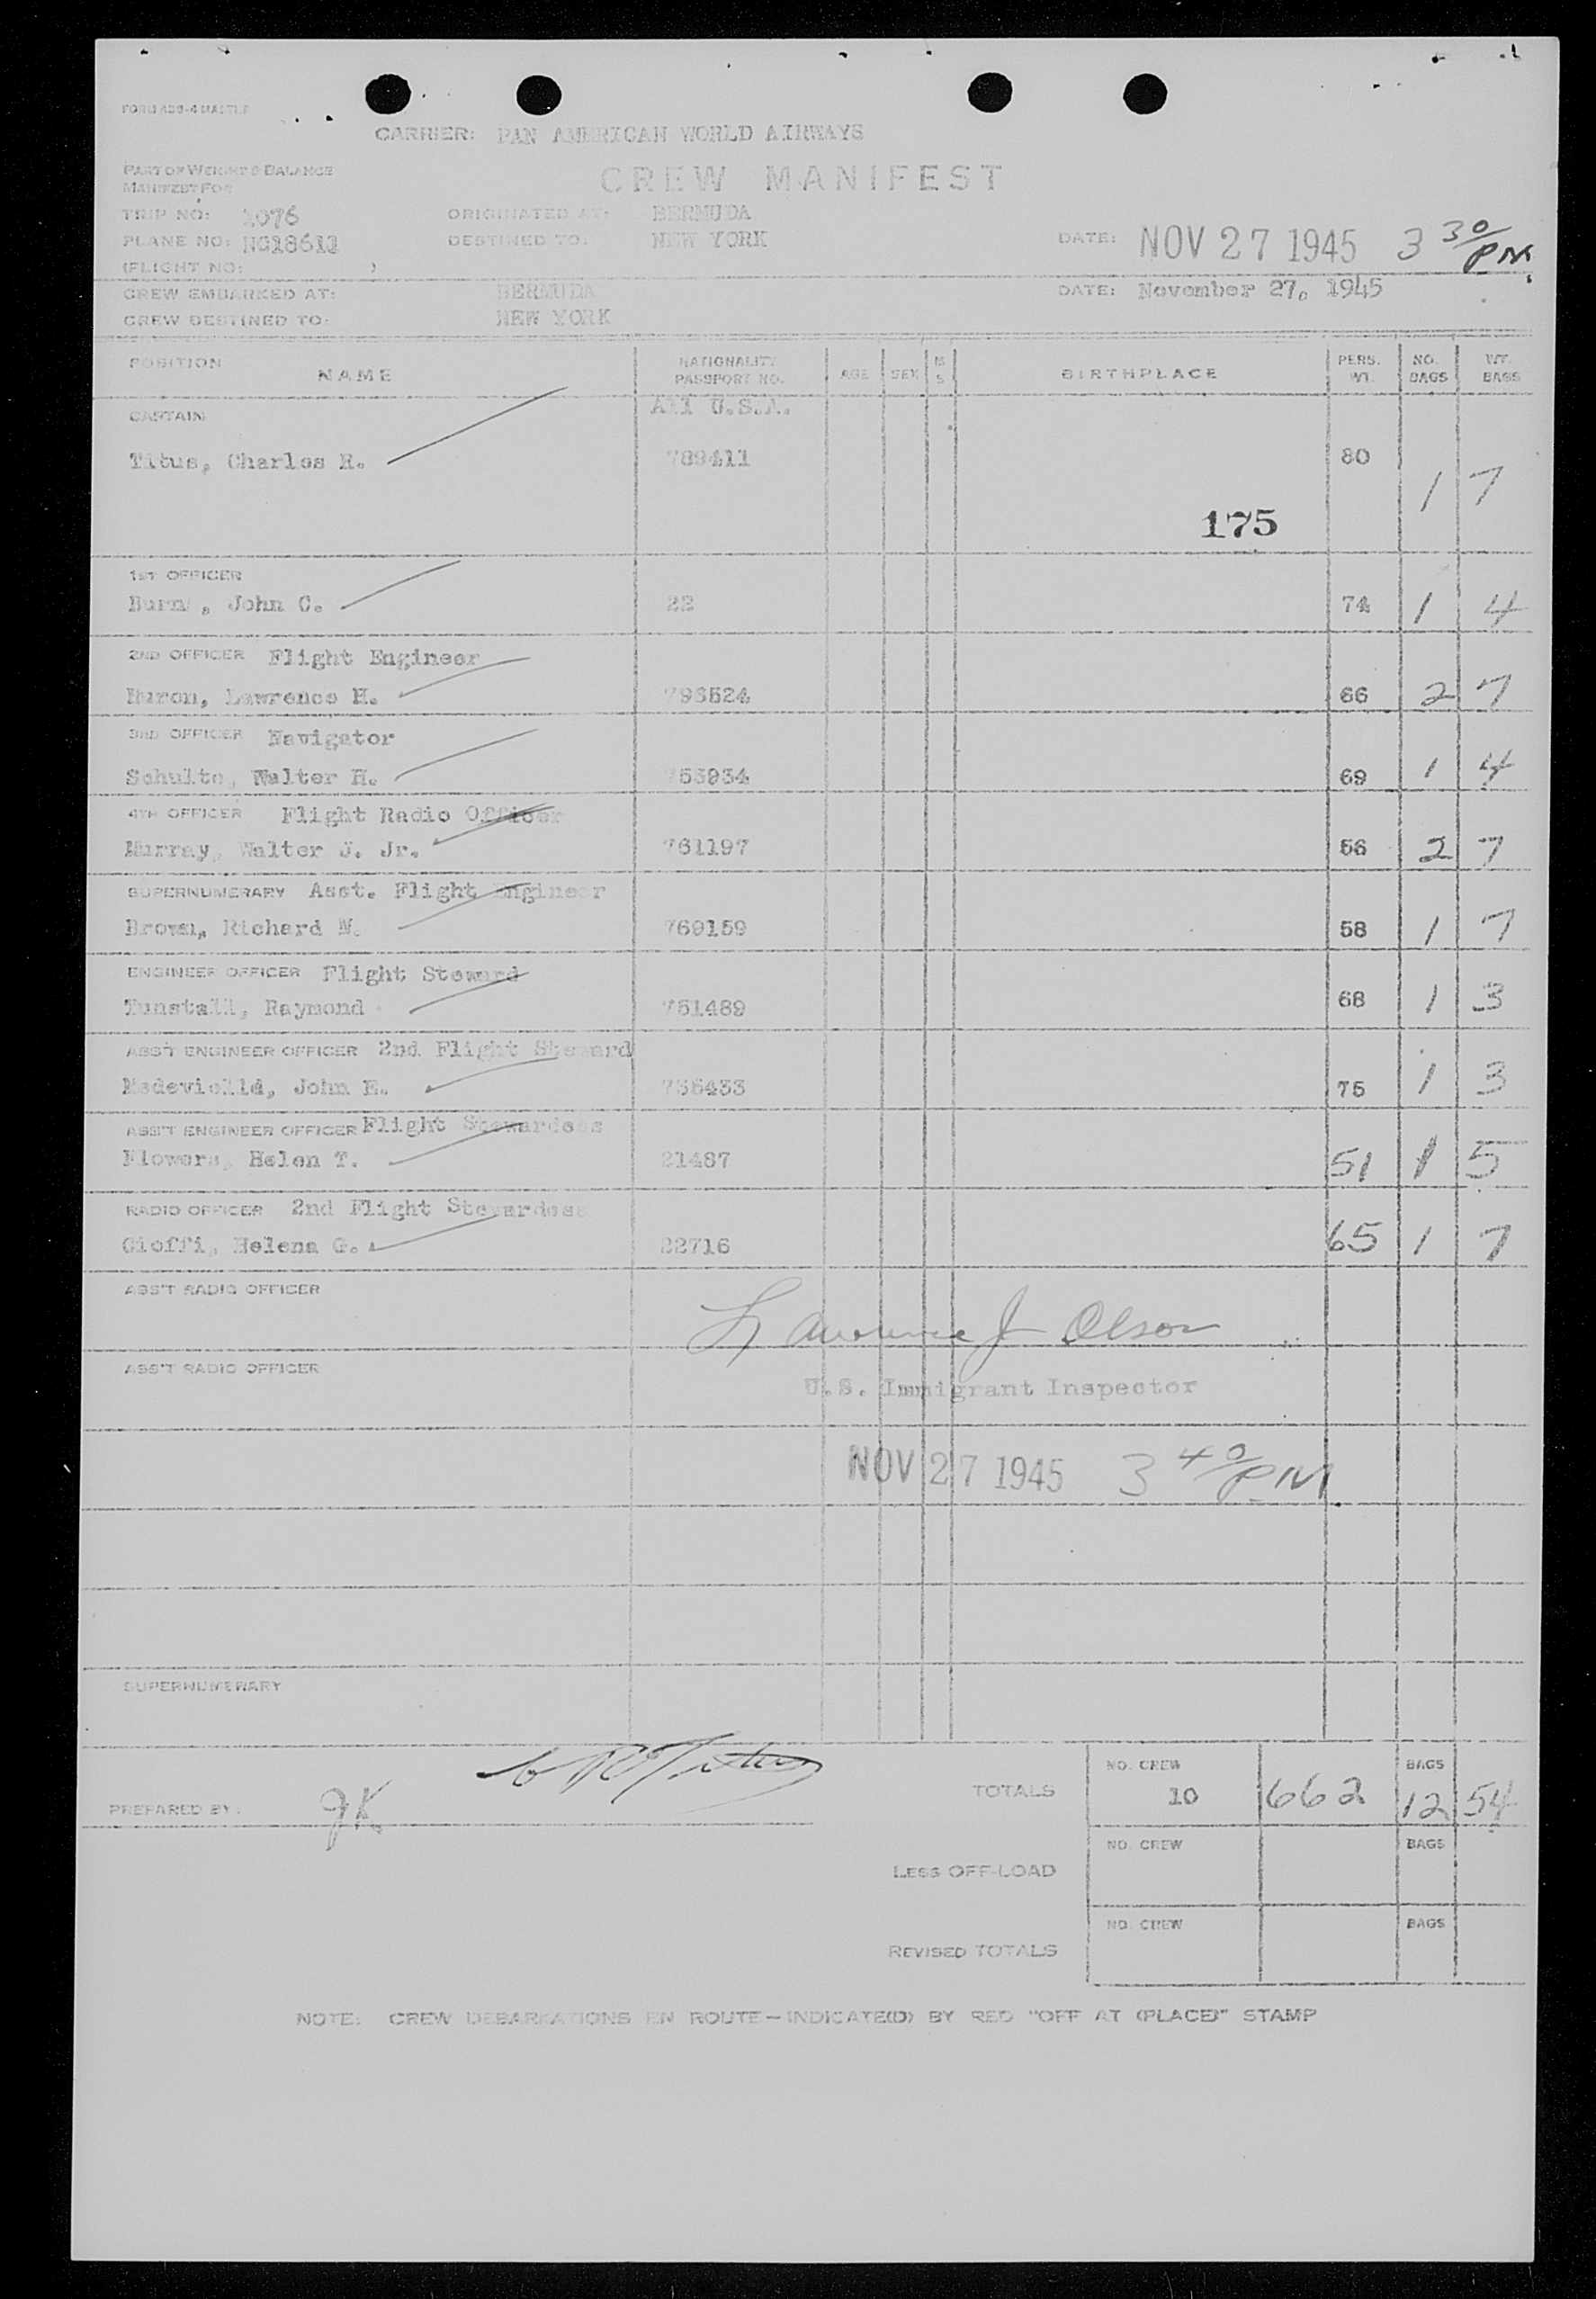 CARRIER: PAN AMERICAN WORLD AIRWAYS
PART OF WEIGHT & BALANCE
MANIFEST FOR
CREW MANIFEST
TRIP NO: 1076 ORIGINATED AT: BERMUDA
PLANE NO: NC18611 DESTINED TO: NEW YORK DATE: NOV 27 1945 3 30/PM
(FLIGHT NO: )
CREW EMBARKED AT: BERMUDA DATE: November 27, 1945
CREW DESTINED TO: NEW YORK
POSITION NAME NATIONALITY PASSPORT NO. AGE SEX M S BIRTHPLACE PERS. WT. NO. BAGS WT. BAGS
CAPTAIN All U.S.A.
Titus, Charles R. 789411 80 1 7
175
1ST OFFICER
John C. 22 74 1 4
2ND OFFICER Flight Engineer
Huron, Lawrence H. 796524 66 2 7
3RD OFFICER Navigator
Schulte, Walter H. 753934 69 1 4
4TH OFFICER Flight Radio Officer
Murray, Walter J. Jr. 761197 56 2 7
SUPERNUMERARY Asst. Flight Engineer
Brown, Richard W. 769159 58 1 7
ENGINEER OFFICER Flight Steward
Tunstall, Raymond 751489 68 1 3
ASS'T ENGINEER OFFICER 2nd Flight Steward
John E. 755433 75 1 3
ASS'T ENGINEER OFFICER Flight Stewardess
Flowers, Helen T. 21487 51 1 5
RADIO OFFICER 2nd Flight Stewardess
Cioffi, Helena G. 22716 65 1 7
ASS'T RADIO OFFICER
Lawrence J Olson
ASS'T RADIO OFFICER
U.S. Immigrant Inspector
NOV 27 1945 3 40/PM
SUPERNUMERARY
C R Titus
PREPARED BY: JK
TOTALS NO. CREW 10 662 BAGS 12 54
LESS OFF-LOAD NO. CREW BAGS
REVISED TOTALS NO. CREW BAGS
NOTE: CREW DEBARKATIONS EN ROUTE—INDICATE(D) BY RED "OFF AT (PLACE)" STAMP